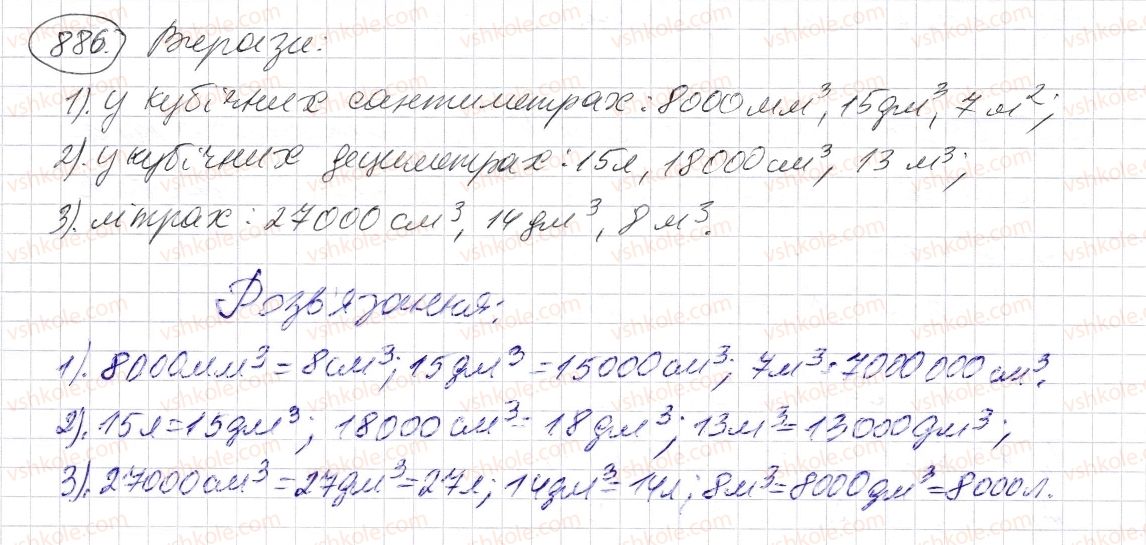 886. Вирази:
1). у кубічних сантиметрах: 8000 мм³, 15 дм³, 7 м²;
2). у кубічних дециметрах: 15 л, 18000 см³, 13 м³;
3). літрах: 27000 см³, 14 дм³, 8 м³.
Розв'язання:
1). 8000 мм³ = 8 см³; 15 дм³ = 15000 см³; 7 м³ = 7000 000 см³.
2). 15 л = 15 дм³; 18000 см³ = 18 дм³; 13 м³ = 13000 дм³;
3). 27000 см³ = 27 дм³ = 27 л; 14 дм³ = 14 л; 8 м³ = 8000 дм³ = 8000 л.